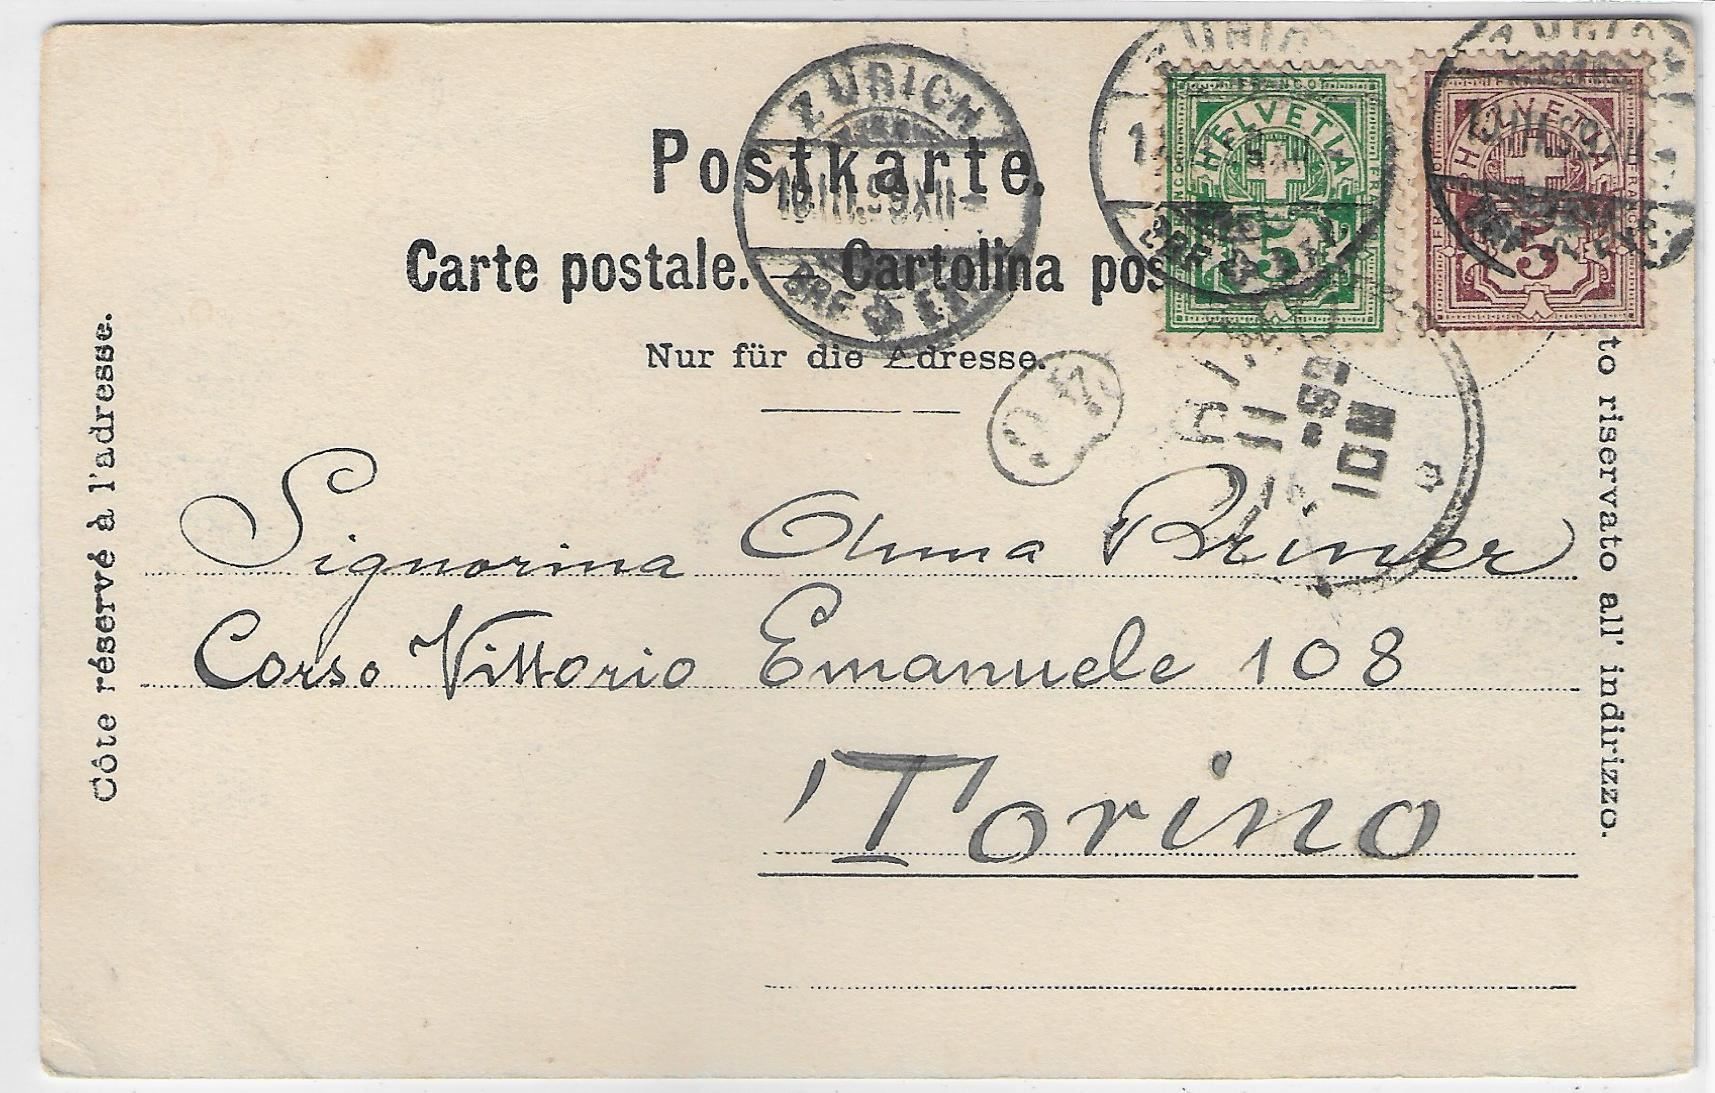 ZÜRICH
Postkarte.
Carte postale. — Cartolina pos
BRF. EXP.
Nur für die Adresse.
FRANCO
HELVETIA
5
FRANCO
HELVETIA
5
10M
Côte réservé à l'adresse.
to riservato all' indirizzo.
Signorina Anna Briner
Corso Vittorio Emanuele 108
Torino